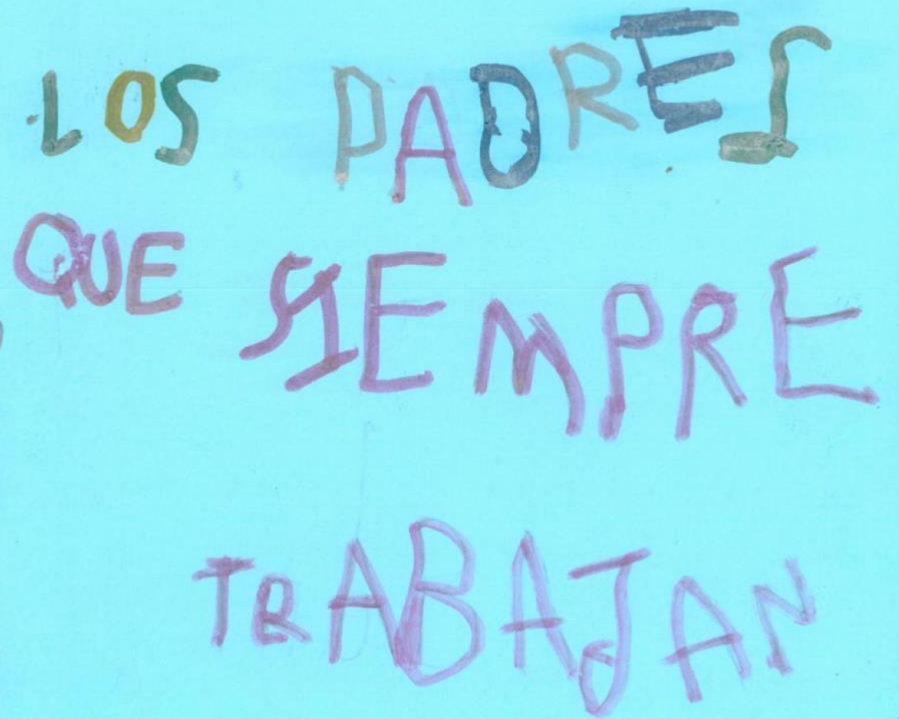 LOS PADRES
QUE SIEMPRE
TRABAJAN